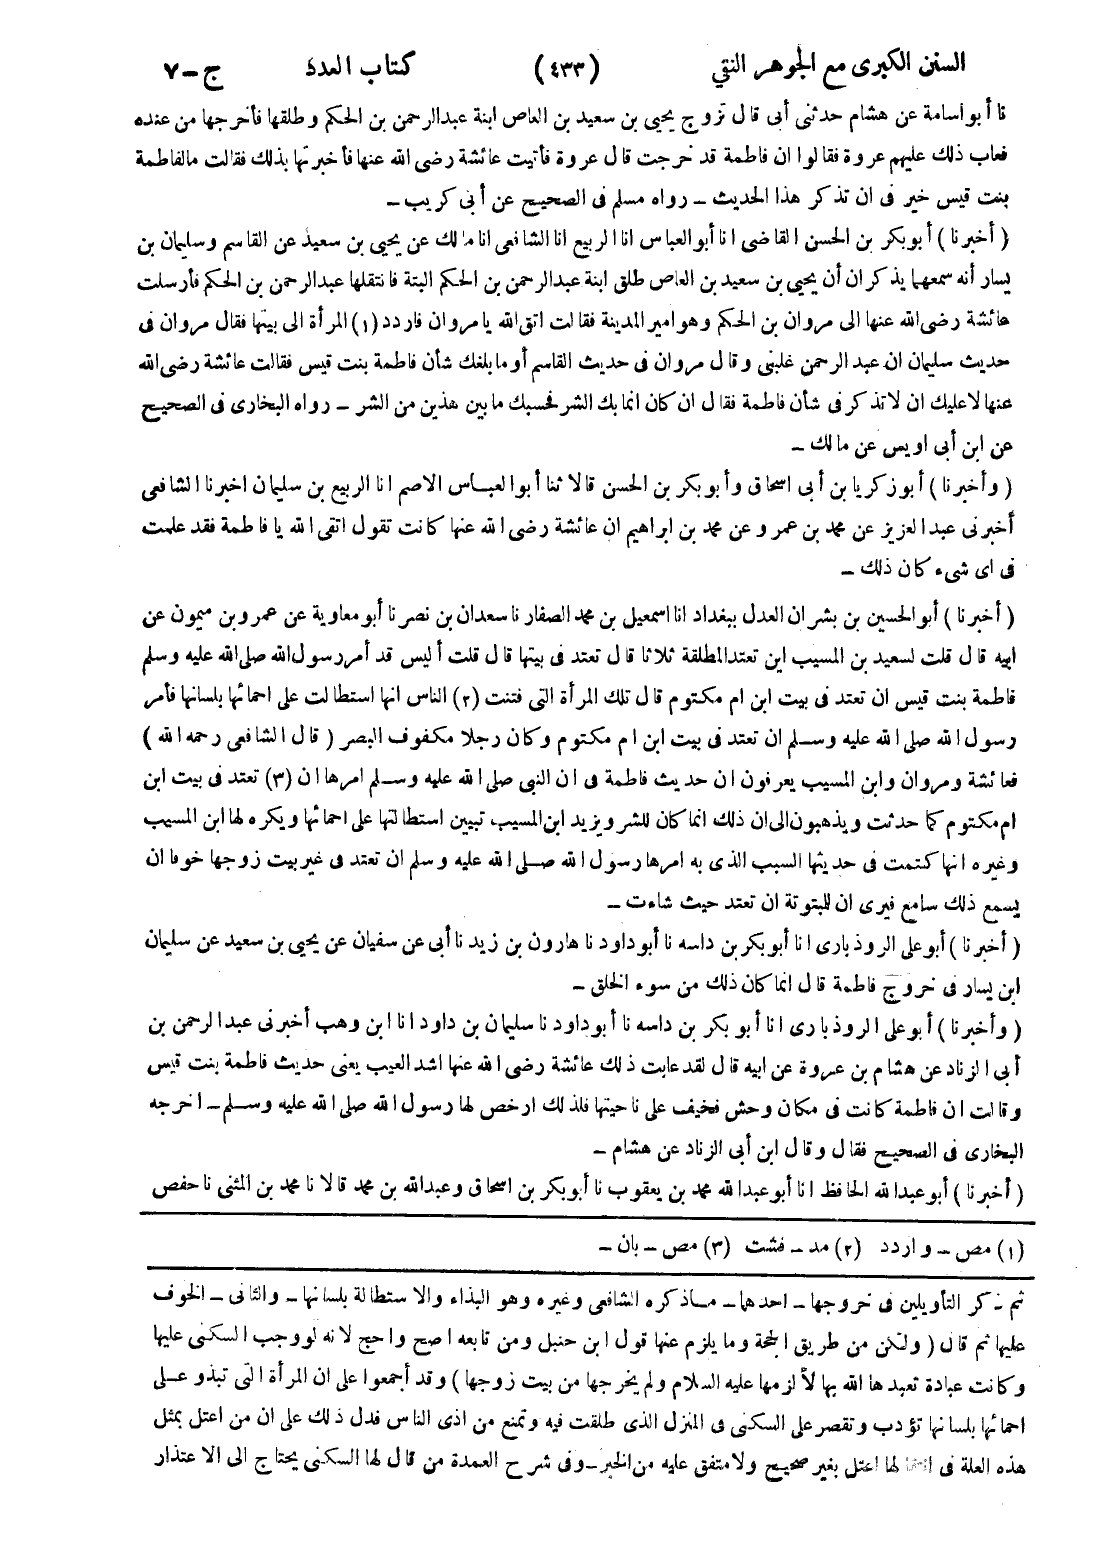 السنن الكبرى مع الجوهر النقي (٤٣٣) كتاب العدد ج - ٧
نا أبو اسامة عن هشام حدثنى أبى قال تزوج يحيى بن سعيد بن العاص ابنة عبد الرحمن بن الحكم وطلقها فأخرجها من عنده
فعاب ذلك عليهم عروة فقالوا ان فاطمة قد خرجت قال عروة فأتيت عائشة رضى الله عنها فأخبرتها بذلك فقالت مالفاطمة
بنت قيس خير فى ان تذكر هذا الحديث - رواه مسلم فى الصحيح عن أبى كريب -
( أخبرنا ) أبو بكر بن الحسن القاضى انا أبو العباس انا الربيع انا الشافعى انا مالك عن يحيى بن سعيد عن القاسم وسليمان بن
يسار أنه سمعهما يذكر ان أن يحيى بن سعيد بن العاص طلق ابنة عبد الرحمن بن الحكم البتة فانتقلها عبد الرحمن بن الحكم فأرسلت
عائشة رضى الله عنها الى مروان بن الحكم وهو امير المدينة فقالت اتق الله يا مروان فاردد (١) المرأة الى بيتها فقال مروان فى
حديث سليمان ان عبد الرحمن غلبنى وقال مروان فى حديث القاسم أوما بلغك شأن فاطمة بنت قيس فقالت عائشة رضى الله
عنها لا عليك ان لا تذكر فى شأن فاطمة فقال ان كان انما بك الشر فحسبك ما بين هذين من الشر - رواه البخارى فى الصحيح
عن ابن أبى اويس عن مالك -
( وأخبرنا ) أبو زكريا بن أبى اسحاق وأبو بكر بن الحسن قالا ثنا أبو العباس الاصم انا الربيع بن سليمان اخبرنا الشافعى
أخبرنى عبد العزيز عن محمد بن عمر وعن محمد بن ابراهيم ان عائشة رضى الله عنها كانت تقول اتقى الله يا فاطمة فقد علمت
فى اى شىء كان ذلك -
( أخبرنا ) أبو الحسين بن بشران العدل ببغداد انا اسمعيل بن محمد الصفار نا سعدان بن نصر نا أبو معاوية عن عمرو بن ميمون عن
ابيه قال قلت لسعيد بن المسيب اين تعتد المطلقة ثلاثا قال تعتد فى بيتها قال قلت أليس قد أمر رسول الله صلى الله عليه وسلم
فاطمة بنت قيس ان تعتد فى بيت ابن ام مكتوم قال تلك المرأة التى فتنت (٢) الناس انها استطالت على احمائها بلسانها فأمر
رسول الله صلى الله عليه وسلم ان تعتد فى بيت ابن ام مكتوم وكان رجلا مكفوف البصر ( قال الشافعى رحمه الله )
فعائشة ومروان وابن المسيب يعرفون ان حديث فاطمة فى ان النبى صلى الله عليه وسلم امرها ان (٣) تعتد فى بيت ابن
ام مكتوم كما حدثت ويذهبون الى ان ذلك انما كان للشر ويزيد ابن المسيب تبيين استطالتها على احمائها ويكره لها ابن المسيب
وغيره انها كتمت فى حديثها السبب الذى به امرها رسول الله صلى الله عليه وسلم ان تعتد فى غير بيت زوجها خوفا ان
يسمع ذلك سامع فيرى ان للبتوتة ان تعتد حيث شاءت -
( أخبرنا ) أبو على الروذبارى انا أبو بكر بن داسه نا أبو داود نا هارون بن زيد نا أبى عن سفيان عن يحيى بن سعيد عن سليمان
ابن يسار فى خروج فاطمة قال انما كان ذلك من سوء الخلق -
( وأخبرنا ) أبو على الروذبارى انا أبو بكر بن داسه نا أبو داود نا سليمان بن داود انا ابن وهب أخبرنى عبد الرحمن بن
أبى الزناد عن هشام بن عروة عن ابيه قال لقد عابت ذلك عائشة رضى الله عنها اشد العيب يعنى حديث فاطمة بنت قيس
وقالت ان فاطمة كانت فى مكان وحش فخيف على ناحيتها فلذلك ارخص لها رسول الله صلى الله عليه وسلم - اخرجه
البخارى فى الصحيح فقال وقال ابن أبى الزناد عن هشام -
( أخبرنا ) أبو عبد الله الحافظ انا أبو عبد الله محمد بن يعقوب نا أبو بكر بن اسحاق وعبد الله بن محمد قالا نا محمد بن المثنى نا حفص
(١) مص - واردد (٢) مد - فشت (٣) مص - بان -
ثم ذكر التأويلين فى خروجها - احدهما - ما ذكره الشافعى وغيره وهو البذاء والاستطالة بلسانها - والثانى - الخوف
عليها ثم قال ( ولكن من طريق الحجة وما يلزم عنها قول ابن حنبل ومن تابعه اصح واحج لانه لو وجب السكنى عليها
وكانت عبادة تعبدها الله بها لألزمها عليه السلام ولم يخرجها من بيت زوجها ) وقد أجمعوا على ان المرأة التى تبذو على
احمائها بلسانها تؤدب وتقصر على السكنى فى المنزل الذى طلقت فيه وتمنع من اذى الناس فدل ذلك على ان من اعتل بمثل
هذه العلة فى انتقالها اعتل بغير صحيح ولا متفق عليه من الخبر - وفى شرح العمدة من قال لها السكنى يحتاج الى الاعتذار